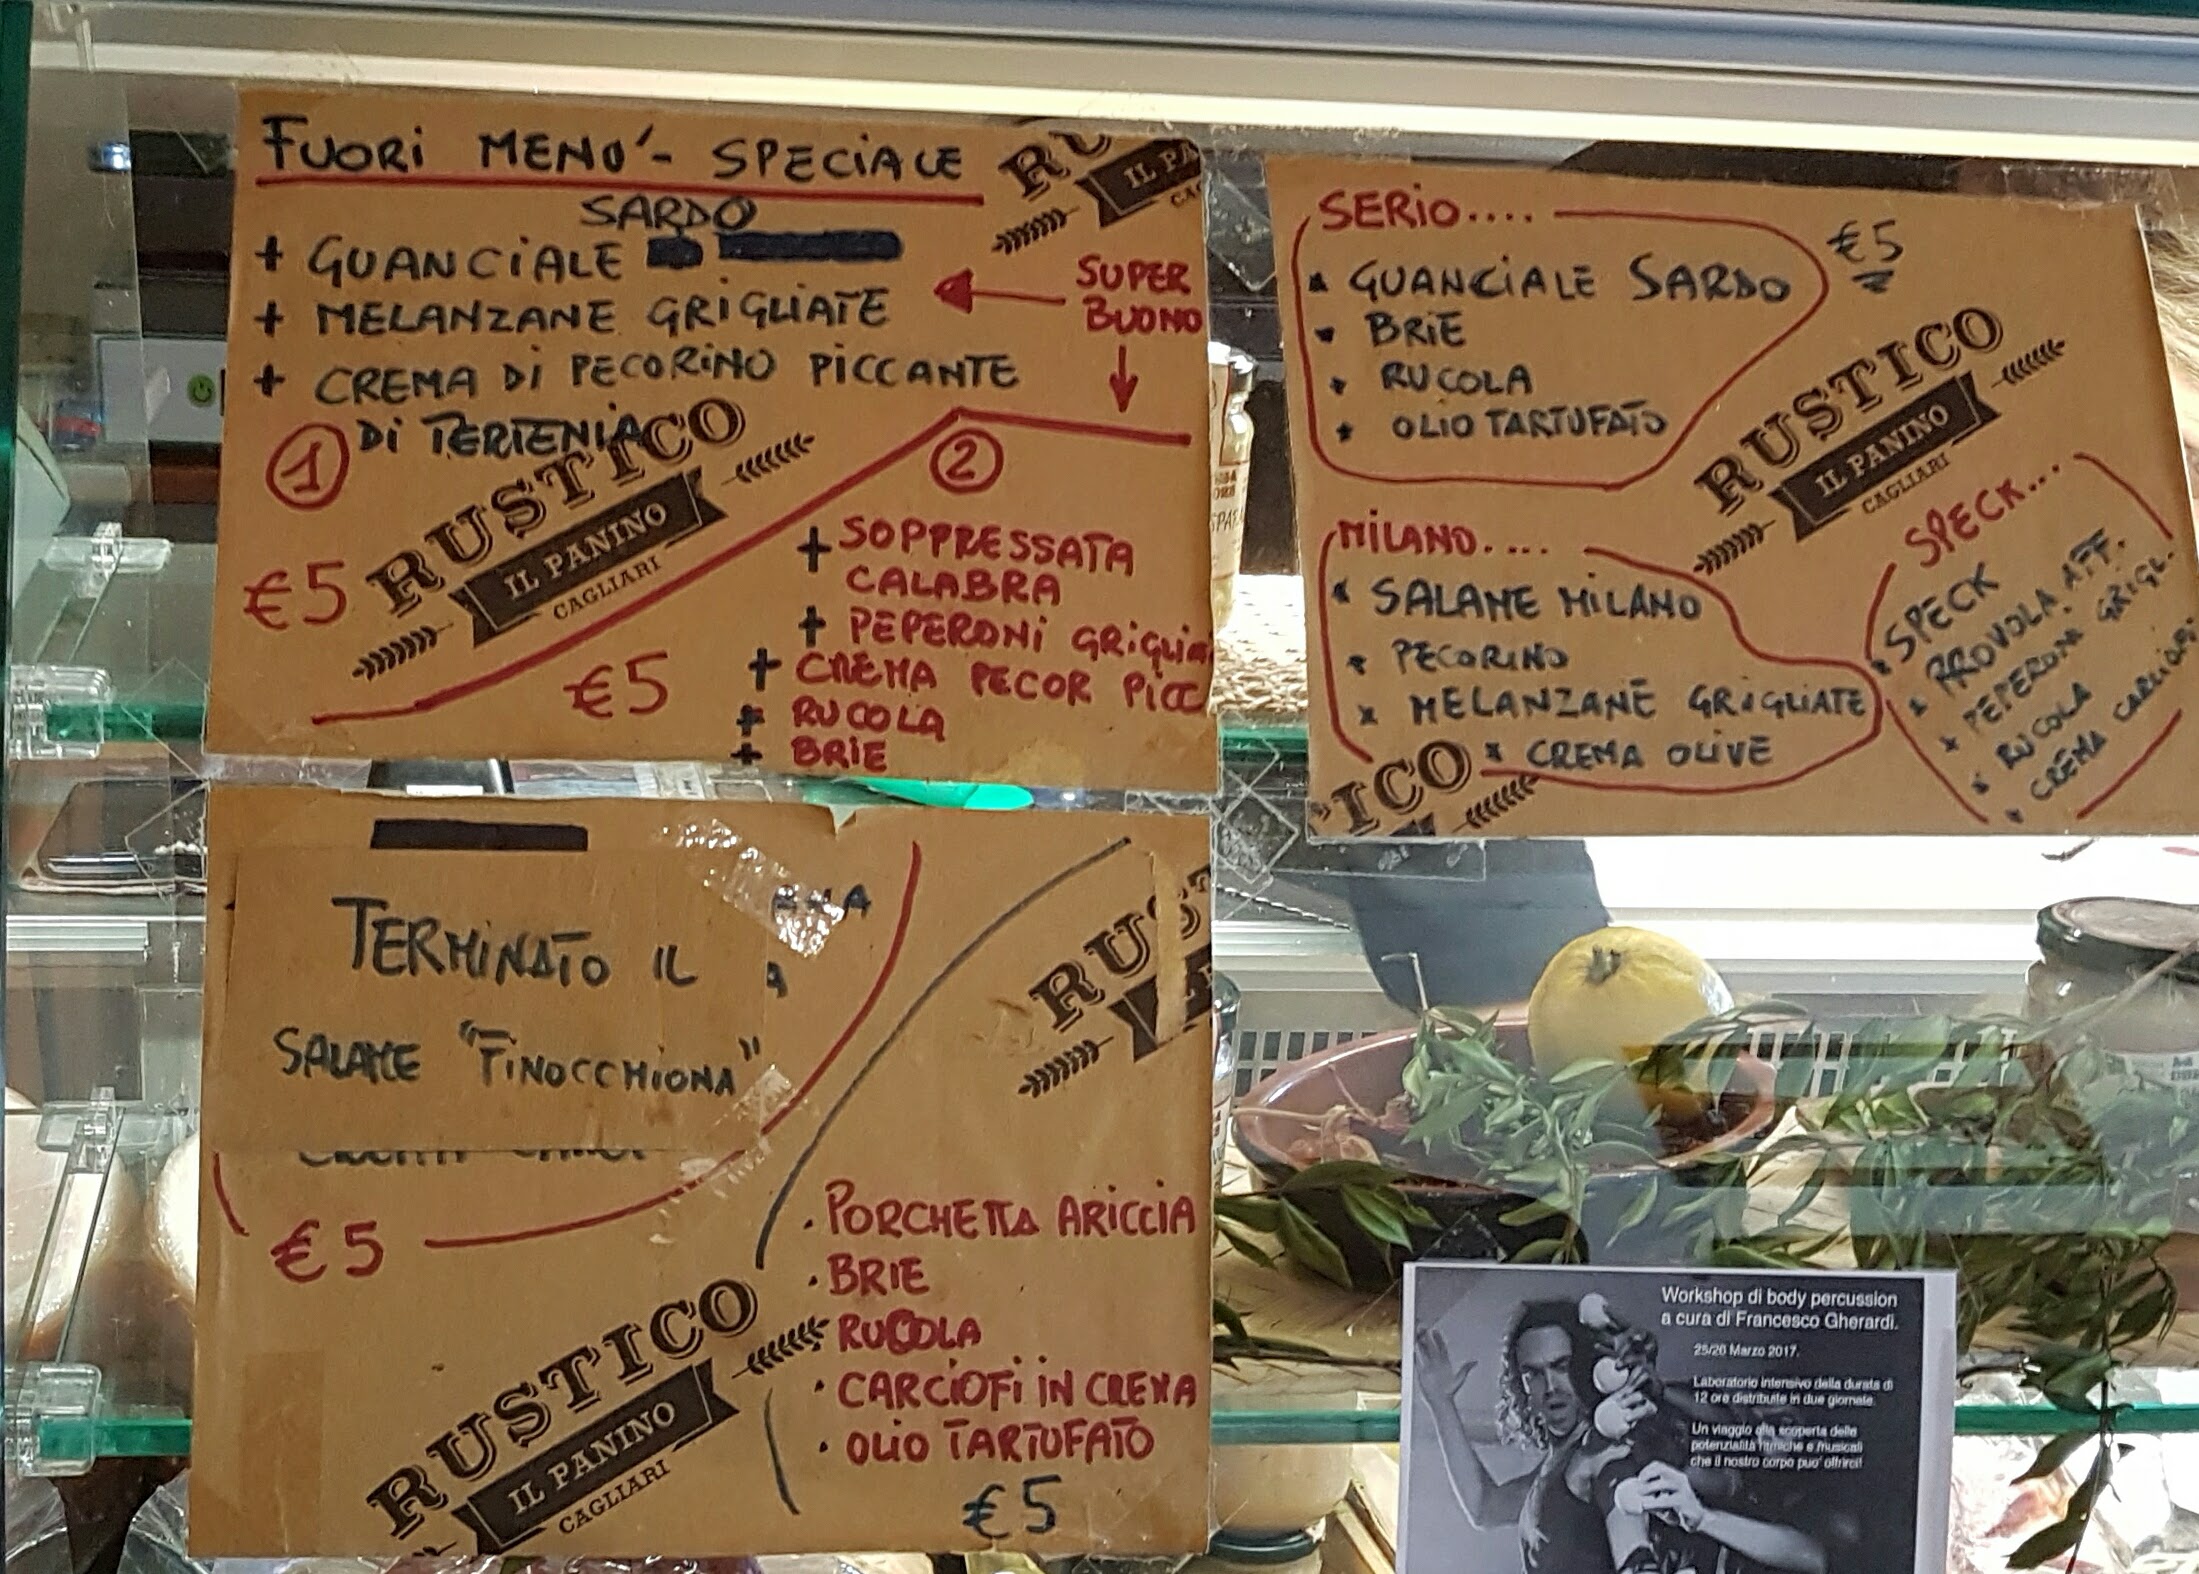 FUORI MENU' - SPECIALE
SARDO
+ GUANCIALE
+ MELANZANE GRIGLIATE
+ CREMA DI PECORINO PICCANTE
DI TERTENIA
SUPER
BUONO
1
€5
RUSTICO
IL PANINO
CAGLIARI
2
+ SOPPRESSATA
CALABRA
+ PEPERONI GRIGLIA
+ CREMA PECOR PICC
+ RUCOLA
+ BRIE
€5
SERIO....
€5
GUANCIALE SARDO
BRIE
RUCOLA
OLIO TARTUFATO
RUSTICO
IL PANINO
CAGLIARI
MILANO....
SALAME MILANO
PECORINO
x MELANZANE GRIGLIATE
x CREMA OLIVE
SPECK...
SPECK
PROVOLA AFF.
PEPERONI GRIGL.
RUCOLA
CREMA CARCIOFI
TERMINATO IL
SALAME "FINOCCHIONA"
€5
RUSTICO
IL PANINO
CAGLIARI
. PORCHETTA ARICCIA
. BRIE
RUCOLA
. CARCIOFI IN CREMA
. OLIO TARTUFATO
€5
Workshop di body percussion
a cura di Francesco Gherardi.
25/26 Marzo 2017.
Laboratorio intensivo della durata di
12 ore distribuite in due giornate.
Un viaggio alla scoperta delle
potenzialità ritmiche e musicali
che il nostro corpo puo' offrirci!